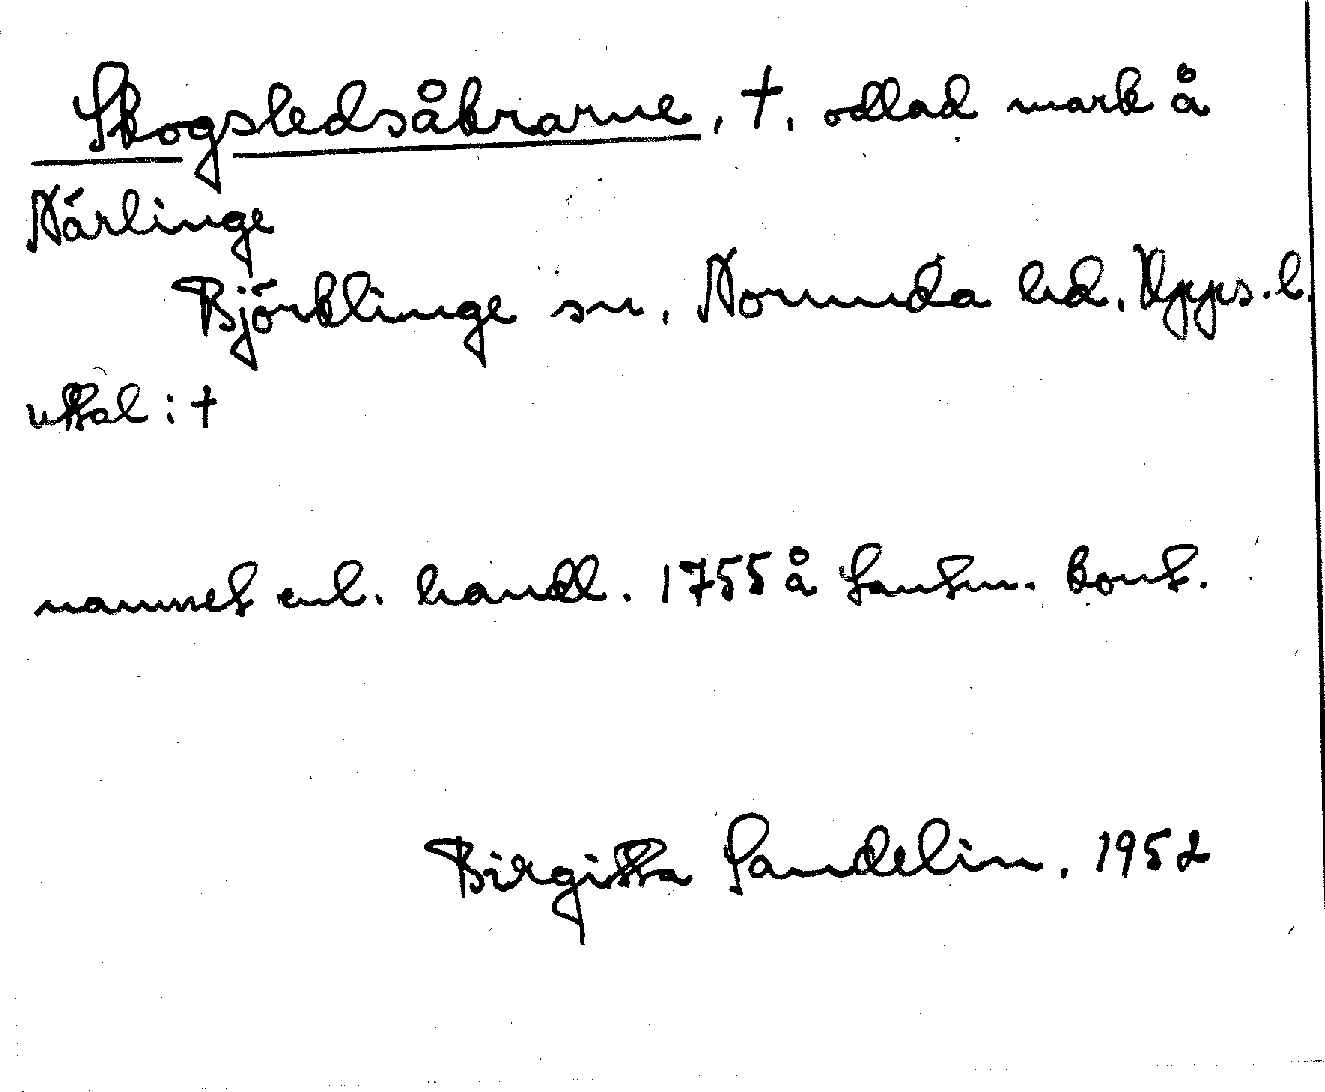 Skogsledsåkrarne, †, odlad mark å
Närlinge
Björklinge sn, Norunda hd. Upps. l.
uttal: †
namnet enl. handl. 1755 å Lantm. kont.
Birgitta Sandelin. 1952